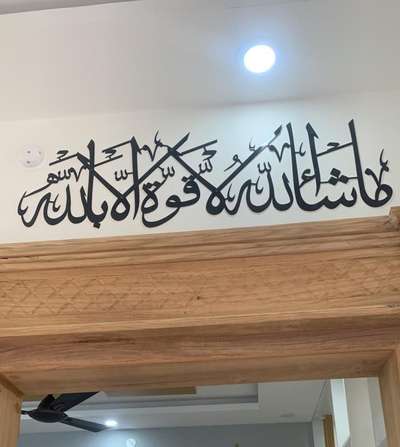 ماشاء الله لا قوة الا بالله